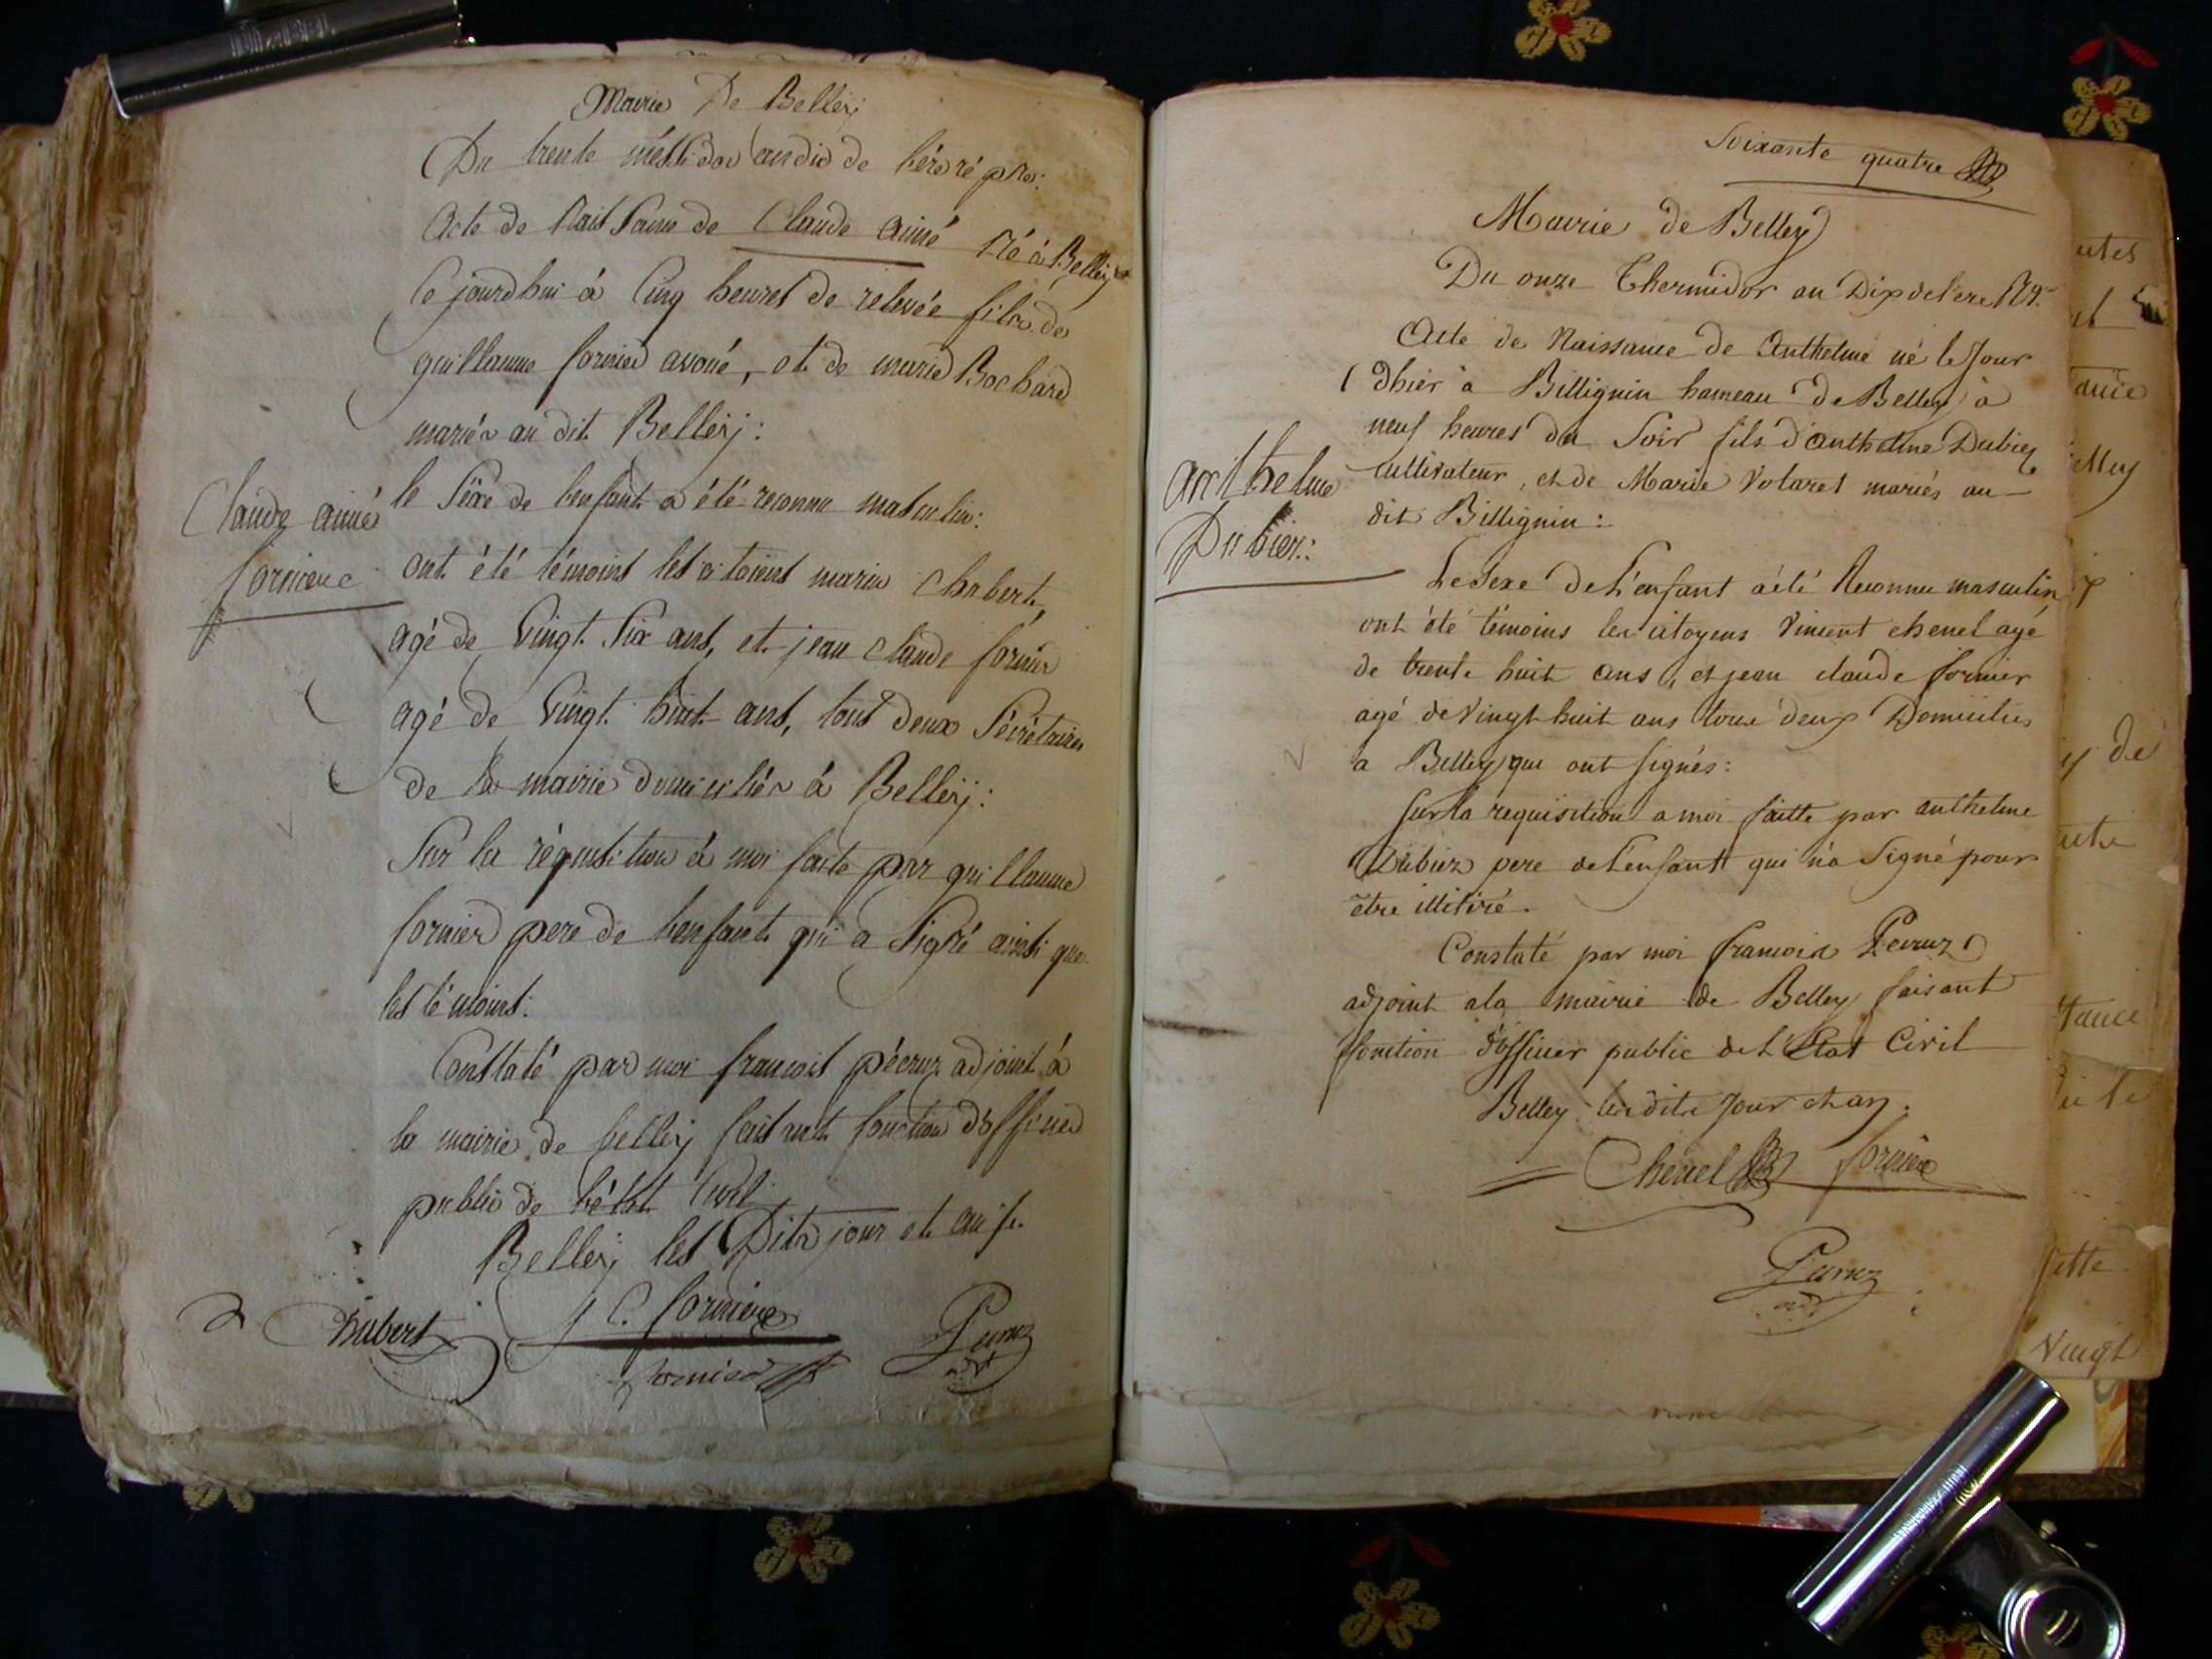 Mairie De Belleÿ
Du trente méssidor an dix de l'ère rép.ne:
Acte de Naissance de Claude aimé Né à Belleÿ
Ce jourdhui à Cinq heures de relevée fils de
guillaume fornier avoué, et de marie Bochard
mariés au dit Belleÿ:
Claude aimé
forniere
le séxe de l'enfant a été reconnu masculin:
ont été témoins les citoiens marin Chabert,
agé de Vingt Six ans, et jean claude fornier
agé de Vingt huit ans, tous deux Sécrétaires
de la mairie domiciliés à Belleÿ:
Sur la réquisition à moi faite par guillaume
fornier pere de l'enfant qui a Signé ainsi que
les témoins:
Constaté par moi francois pécruz adjoint à
la mairie de belleÿ faisant fonction d'officier
public de l'état Civil
Belleÿ les Dits jour et an
Chabert J C. forniere
fornier Pecruz
adjt
Soixante quatre
Mairie de Belley
Du onze Thermidor an Dix de l'ere
Acte de Naissance de Anthelme né le Jour
dhier à Billignin hameau de Belley à
neuf heures du Soir fils d'anthelme Dubiez
anthelme
Dubiez:
cultivateur, et de Marie Volaret mariés au-
dit Billignin:
Le Sexe de L'enfant a été Reconnu masculin
ont été témoins les citoyens Vincent chenel agé
de trente huit ans, et jean claude fornier
agé de Vingt huit ans tous deux Domiciliés
a Belley que ont signés:
Sur la requisition a moi faitte par anthelme
Dubiez pere de l'enfant qui n'a Signé pour
être illitiré.
Constaté par moi francois Pecruz
adjoint a la mairie de Belley faisant
fonction d'officier public de L'Etat Civil
Belley les dits Jour et an.
Chenel forniere
Pecruz
adt